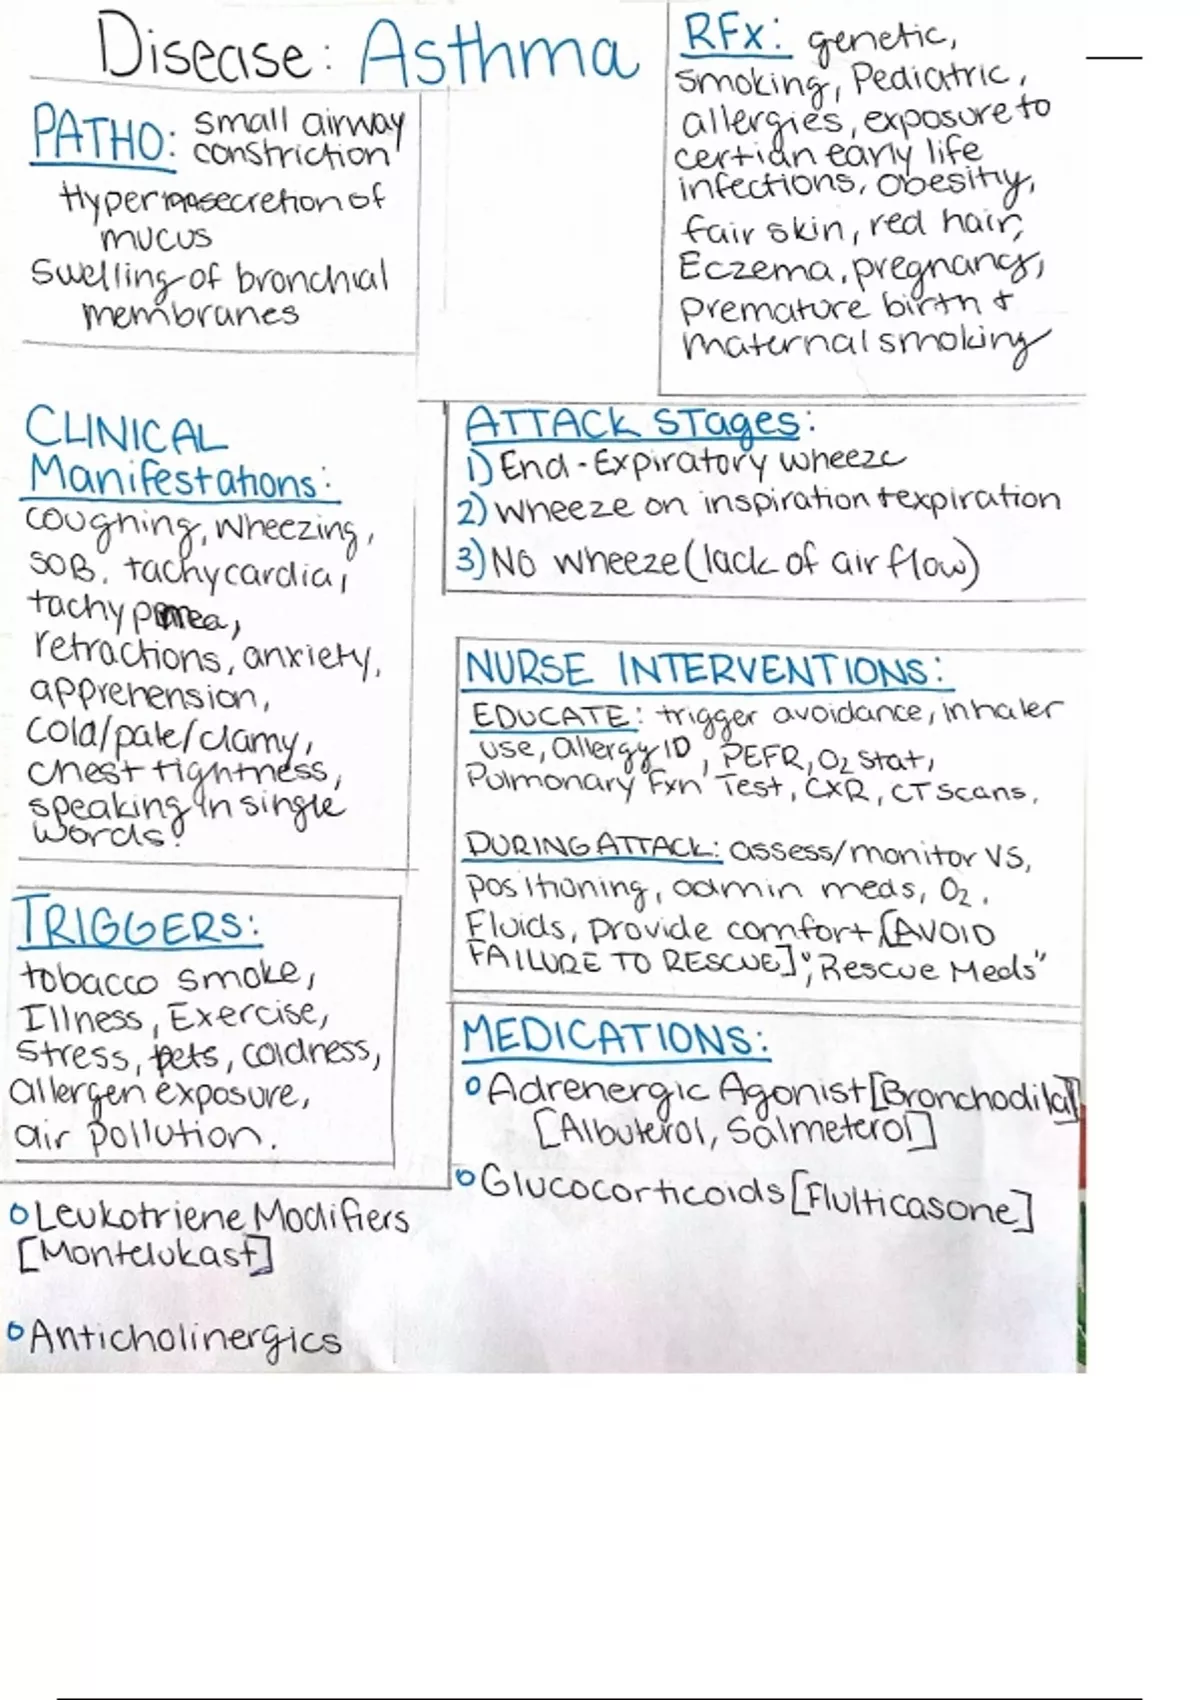 Disease: Asthma
PATHO: small airway
constriction
Hypersecretion of
mucus
Swelling of bronchial
membranes
RFx: genetic,
smoking, Pediatric,
allergies, exposure to
certian early life
infections, obesitiy,
fair skin, red hair,
Eczema, pregnancy,
premature birth +
maternal smoking
CLINICAL
Manifestations:
coughing, wheezing,
SOB, tachycardia,
tachypnea,
retractions, anxiety,
apprehension,
cold/pale/clamy,
chest tightness,
speaking in single
words.
ATTACK STages:
1) End-Expiratory wheeze
2) wheeze on inspiration + expiration
3) No wheeze (lack of air flow)
NURSE INTERVENTIONS:
EDUCATE: trigger avoidance, inhaler
use, allergy ID, PEFR, O2 stat,
Pulmonary Fxn Test, CXR, CT scans,
DURING ATTACK: assess/monitor VS,
positioning, admin meds, O2,
Fluids, provide comfort [AVOID
FAILURE TO RESCUE]; "Rescue Meds"
TRIGGERS:
tobacco smoke,
Illness, Exercise,
Stress, pets, coldness,
allergen exposure,
air pollution.
MEDICATIONS:
o Adrenergic Agonist [Bronchodila]
[Albuterol, Salmeterol]
o Glucocorticoids [Flulticasone]
o Leukotriene Modifiers
[Montelukast]
o Anticholinergics